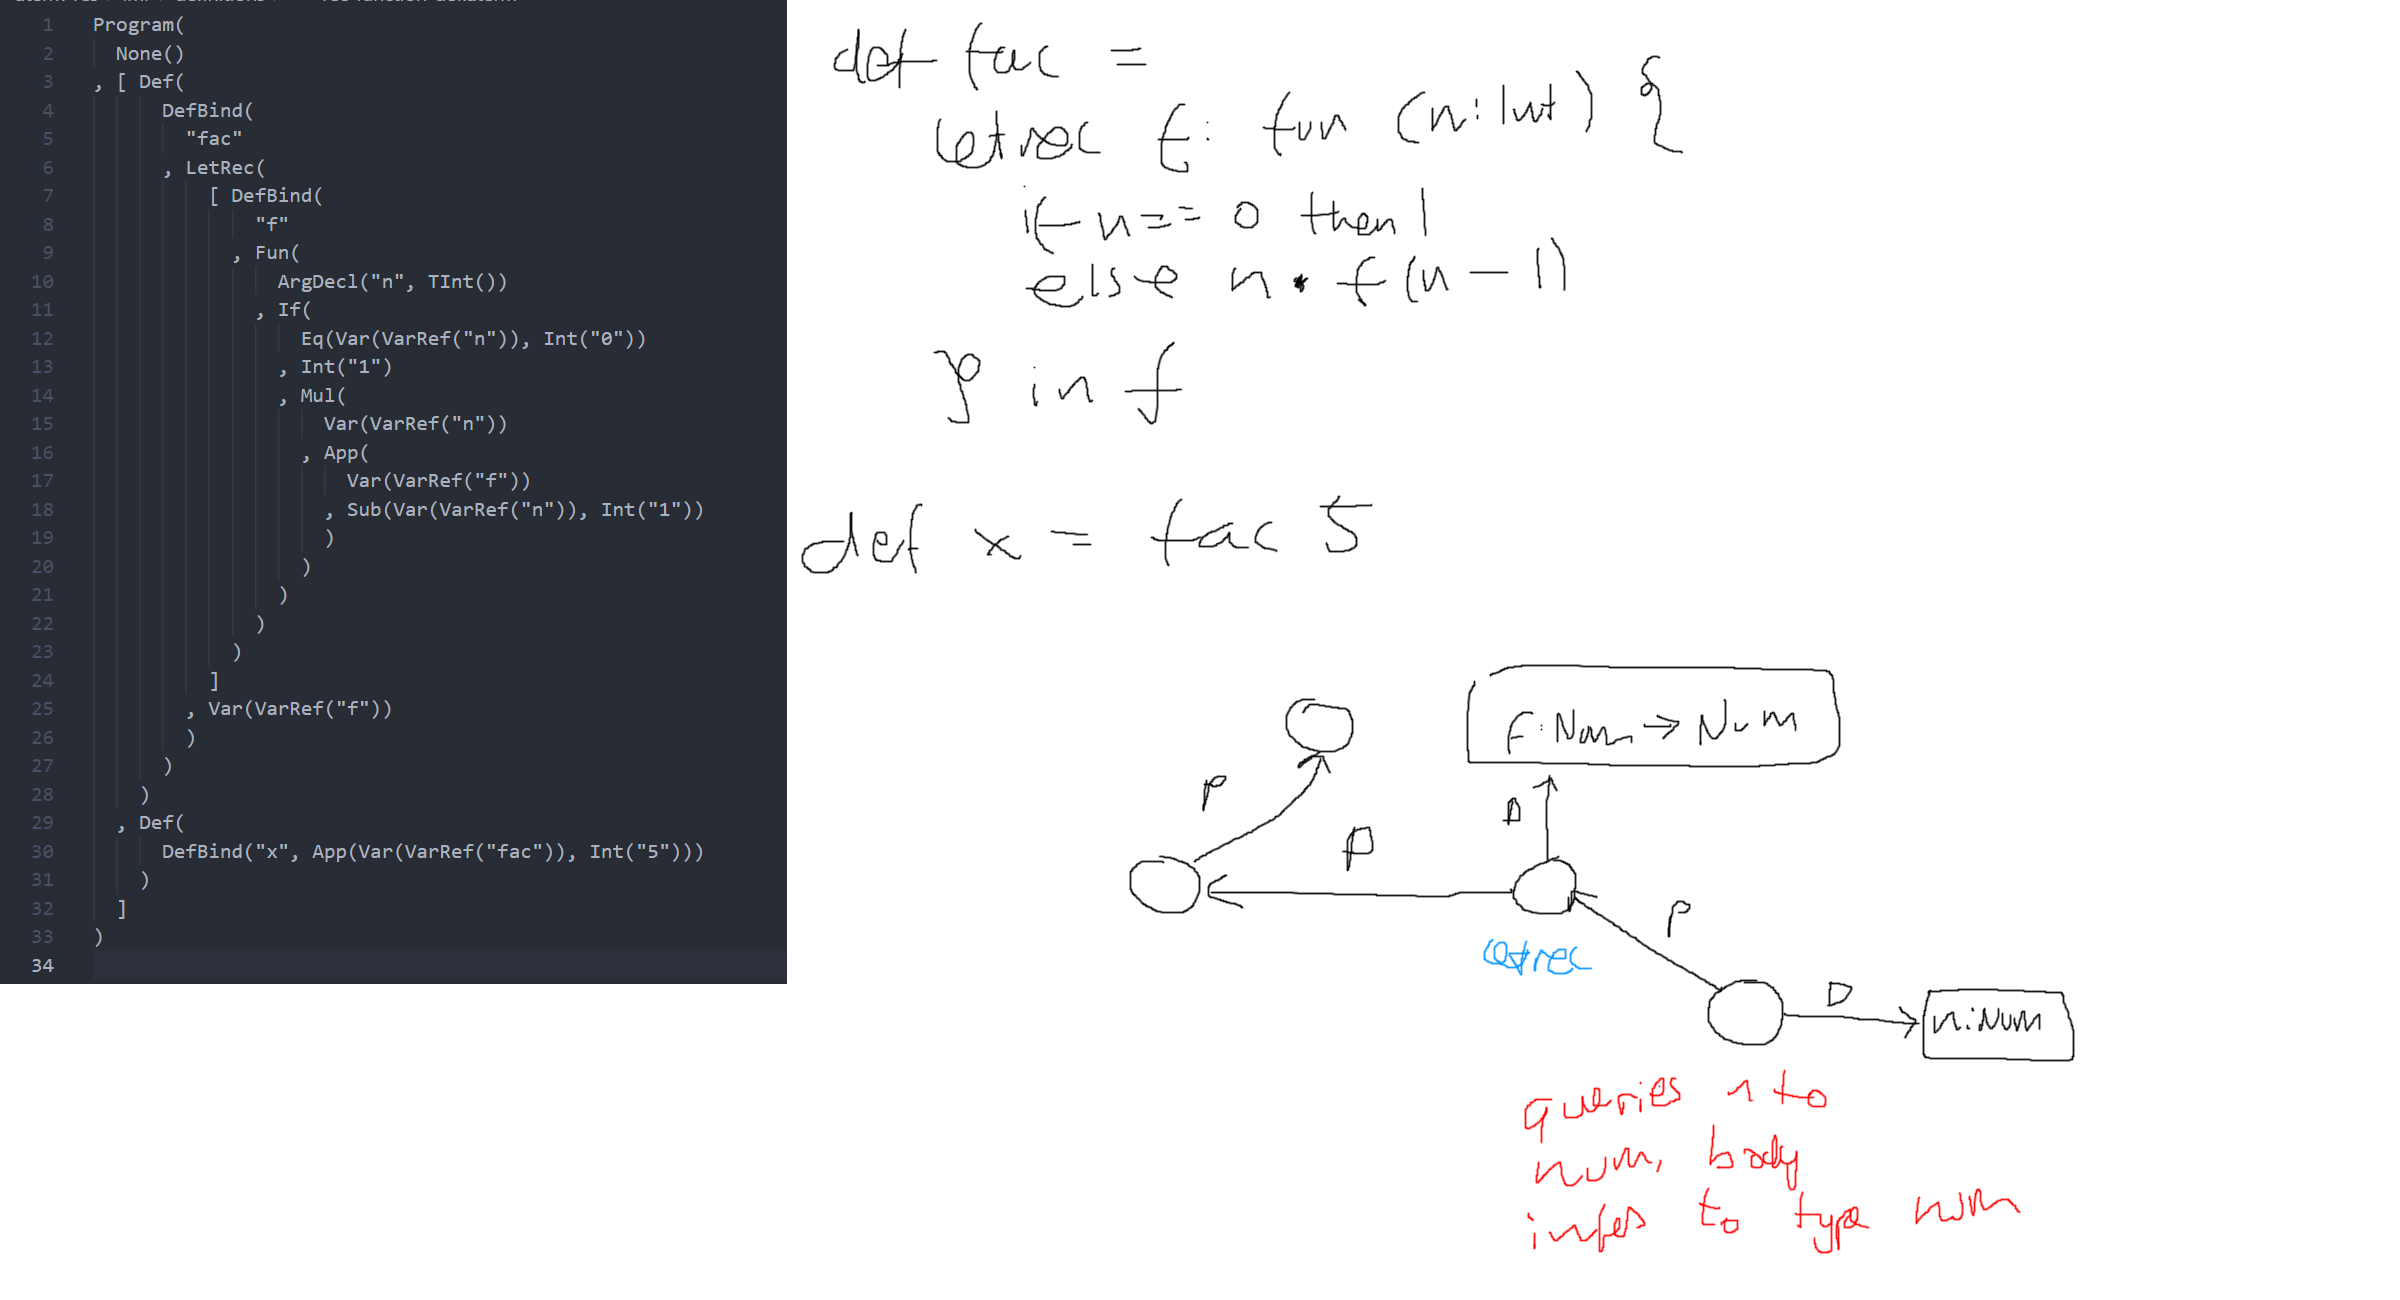 1 Program(
2 None()
3 , [ Def(
4 DefBind(
5 "fac"
6 , LetRec(
7 [ DefBind(
8 "f"
9 , Fun(
10 ArgDecl("n", TInt())
11 , If(
12 Eq(Var(VarRef("n")), Int("0"))
13 , Int("1")
14 , Mul(
15 Var(VarRef("n"))
16 , App(
17 Var(VarRef("f"))
18 , Sub(Var(VarRef("n")), Int("1"))
19 )
20 )
21 )
22 )
23 )
24 ]
25 , Var(VarRef("f"))
26 )
27 )
28 )
29 , Def(
30 DefBind("x", App(Var(VarRef("fac")), Int("5")))
31 )
32 ]
33 )
34
def fac =
letrec f: fun (n: Int) {
if n == 0 then 1
else n * f(n - 1)
} in f
def x = fac 5
F: Num → Num
P
D
P
letrec
P
D
n: Num
queries n to
num, body
infes to type num